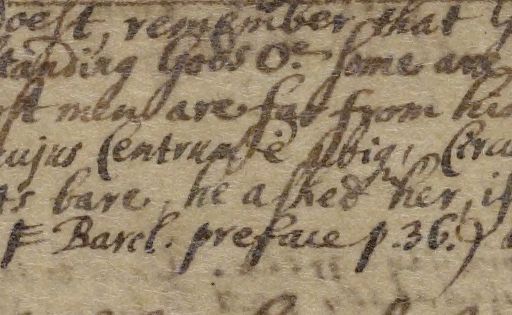 doest, remember that G
standing Gods O.e some are
ost men are far from his
cujus Centrum é ubiq, Circ
ts bare, he asked her, if
Barcl. preface p.36.)